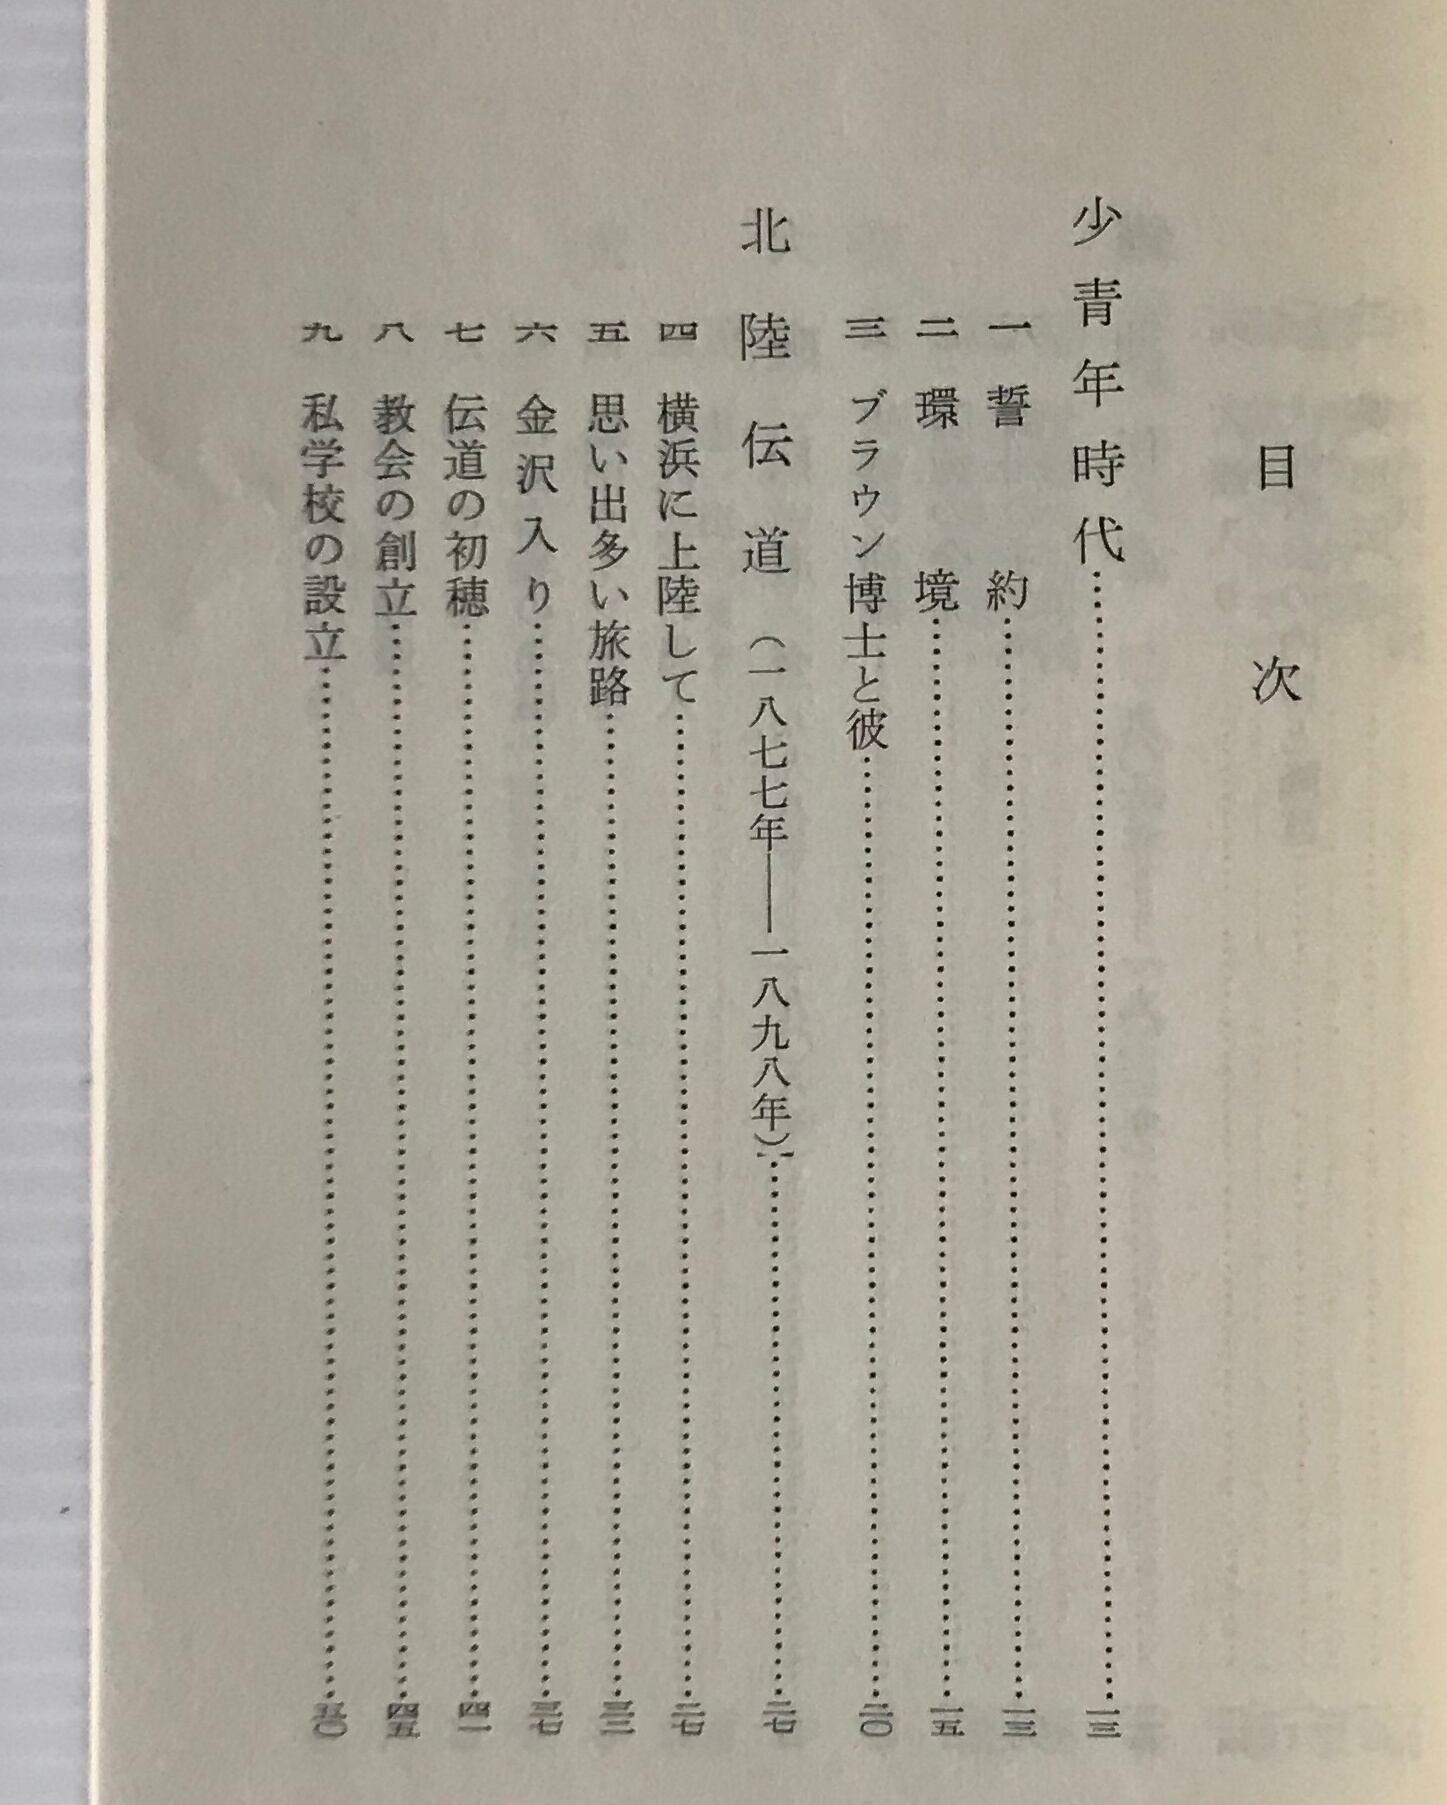 目次
少青年時代……一三
一 誓約……一三
二 環境……一五
三 ブラウン博士と彼……二〇
北陸伝道（一八七七年――一八九八年）……二七
四 横浜に上陸して……二七
五 思い出多い旅路……三二
六 金沢入り……三七
七 伝道の初穂……四一
八 教会の創立……四五
九 私学校の設立……五〇